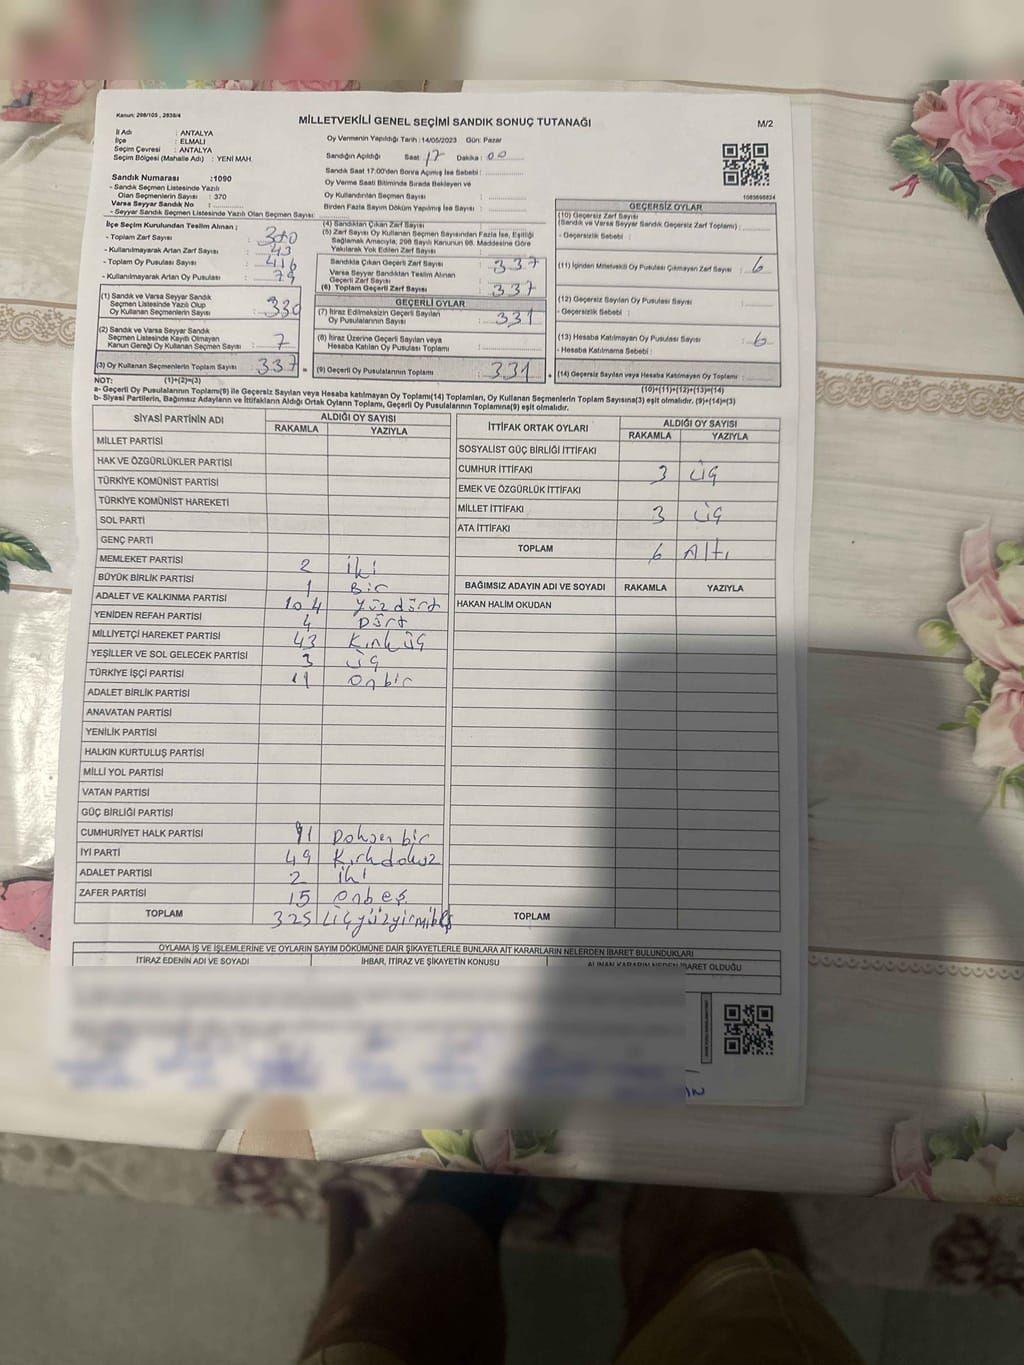 Kanun: 298/105 , 2839/4
MİLLETVEKİLİ GENEL SEÇİMİ SANDIK SONUÇ TUTANAĞI
M/2
İl Adı : ANTALYA
İlçe : ELMALI
Seçim Çevresi : ANTALYA
Seçim Bölgesi (Mahalle Adı) : YENİ MAH.
Sandık Numarası :1090
- Sandık Seçmen Listesinde Yazılı
Olan Seçmenlerin Sayısı : 370
Varsa Seyyar Sandık No :
- Seyyar Sandık Seçmen Listesinde Yazılı Olan Seçmen Sayısı:
Oy Vermenin Yapıldığı Tarih :14/05/2023 Gün: Pazar
Sandığın Açıldığı Saat 17 Dakika : 00
Sandık Saat 17:00'den Sonra Açılmış İse Sebebi :
Oy Verme Saati Bitiminde Sırada Bekleyen ve
Oy Kullandırılan Seçmen Sayısı :
Birden Fazla Sayım Döküm Yapılmış İse Sayısı :
1083698824
İlçe Seçim Kurulundan Teslim Alınan ;
- Toplam Zarf Sayısı : 380
- Kullanılmayarak Artan Zarf Sayısı : 43
- Toplam Oy Pusulası Sayısı : 416
- Kullanılmayarak Artan Oy Pusulası : 79
(1) Sandık ve Varsa Seyyar Sandık
Seçmen Listesinde Yazılı Olup
Oy Kullanan Seçmenlerin Sayısı : 330
(2) Sandık ve Varsa Seyyar Sandık
Seçmen Listesinde Kayıtlı Olmayan
Kanun Gereği Oy Kullanan Seçmen Sayısı : 7
(3) Oy Kullanan Seçmenlerin Toplam Sayısı : 337
(4) Sandıktan Çıkan Zarf Sayısı :
(5) Zarf Sayısı Oy Kullanan Seçmen Sayısından Fazla İse, Eşitliği
Sağlamak Amacıyla, 298 Sayılı Kanunun 98. Maddesine Göre
Yakılarak Yok Edilen Zarf Sayısı :
Sandıkta Çıkan Geçerli Zarf Sayısı : 337
Varsa Seyyar Sandıktan Teslim Alınan
Geçerli Zarf Sayısı :
(6) Toplam Geçerli Zarf Sayısı : 337
GEÇERLİ OYLAR
(7) İtiraz Edilmeksizin Geçerli Sayılan
Oy Pusulalarının Sayısı : 331
(8) İtiraz Üzerine Geçerli Sayılan veya
Hesaba Katılan Oy Pusulası Toplamı :
(9) Geçerli Oy Pusulalarının Toplamı : 331
GEÇERSİZ OYLAR
(10) Geçersiz Zarf Sayısı
(Sandık ve Varsa Seyyar Sandık Geçersiz Zarf Toplamı) :
- Geçersizlik Sebebi :
(11) İçinden Milletvekili Oy Pusulası Çıkmayan Zarf Sayısı : 6
(12) Geçersiz Sayılan Oy Pusulası Sayısı :
- Geçersizlik Sebebi :
(13) Hesaba Katılmayan Oy Pusulası Sayısı : 6
- Hesaba Katılmama Sebebi :
(14) Geçersiz Sayılan veya Hesaba Katılmayan Oy Toplamı :
NOT: (1)+(2)=(3) (10)+(11)+(12)+(13)=(14)
a- Geçerli Oy Pusulalarının Toplamı(9) ile Geçersiz Sayılan veya Hesaba katılmayan Oy Toplamı(14) Toplamları, Oy Kullanan Seçmenlerin Toplam Sayısına(3) eşit olmalıdır. (9)+(14)=(3)
b- Siyasi Partilerin, Bağımsız Adayların ve İttifakların Aldığı Ortak Oyların Toplamı, Geçerli Oy Pusulalarının Toplamına(9) eşit olmalıdır.
SİYASİ PARTİNİN ADI ALDIĞI OY SAYISI
RAKAMLA YAZIYLA
MİLLET PARTİSİ
HAK VE ÖZGÜRLÜKLER PARTİSİ
TÜRKİYE KOMÜNİST PARTİSİ
TÜRKİYE KOMÜNİST HAREKETİ
SOL PARTİ
GENÇ PARTİ
MEMLEKET PARTİSİ 2 iki
BÜYÜK BİRLİK PARTİSİ 1 Bir
ADALET VE KALKINMA PARTİSİ 104 Yüzdört
YENİDEN REFAH PARTİSİ 4 Dört
MİLLİYETÇİ HAREKET PARTİSİ 43 Kırküç
YEŞİLLER VE SOL GELECEK PARTİSİ 3 üç
TÜRKİYE İŞÇİ PARTİSİ 11 Onbir
ADALET BİRLİK PARTİSİ
ANAVATAN PARTİSİ
YENİLİK PARTİSİ
HALKIN KURTULUŞ PARTİSİ
MİLLİ YOL PARTİSİ
VATAN PARTİSİ
GÜÇ BİRLİĞİ PARTİSİ
CUMHURİYET HALK PARTİSİ 91 Doksan bir
İYİ PARTİ 49 Kırkdokuz
ADALET PARTİSİ 2 iki
ZAFER PARTİSİ 15 Onbeş
TOPLAM 325 Üçyüzyirmibeş
İTTİFAK ORTAK OYLARI ALDIĞI OY SAYISI
RAKAMLA YAZIYLA
SOSYALİST GÜÇ BİRLİĞİ İTTİFAKI
CUMHUR İTTİFAKI 3 üç
EMEK VE ÖZGÜRLÜK İTTİFAKI
MİLLET İTTİFAKI 3 üç
ATA İTTİFAKI
TOPLAM 6 Altı
BAĞIMSIZ ADAYIN ADI VE SOYADI RAKAMLA YAZIYLA
HAKAN HALİM OKUDAN
TOPLAM
OYLAMA İŞ VE İŞLEMLERİNE VE OYLARIN SAYIM DÖKÜMÜNE DAİR ŞİKAYETLERLE BUNLARA AİT KARARLARIN NELERDEN İBARET BULUNDUKLARI
İTİRAZ EDENİN ADI VE SOYADI İHBAR, İTİRAZ VE ŞİKAYETİN KONUSU ALINAN KARARIN NEDEN İBARET OLDUĞU